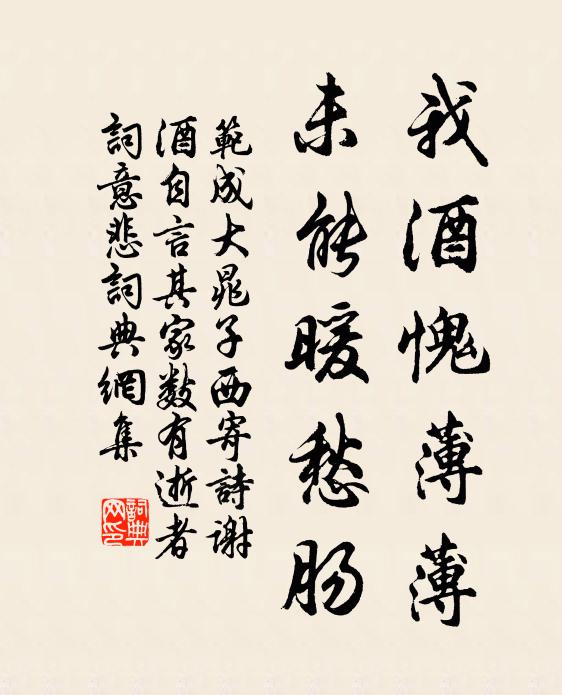 我酒愧薄薄
未能暖愁肠
範成大晁子西寄詩謝
酒自言其家数有逝者
詞意悲詞典網集
詞典
网印